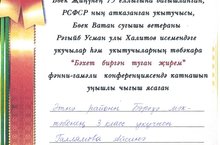 Бөек Җиңүнең 75 еллыгына багышланган,
РСФСР ның атказанган укытучысы,
Бөек Ватан сугышы ветераны
Рәгыйб Усман улы Халитов исемендәге
укучылар һәм укытучыларның төбәкара
"Бәхет биргән туган җирем"
фәнни-гамәли конференциясендә катнашып
уңышлы чыгыш ясаган
Әтнә районы Бәрәзә мәк-
тәбенең 3 класс укучысы